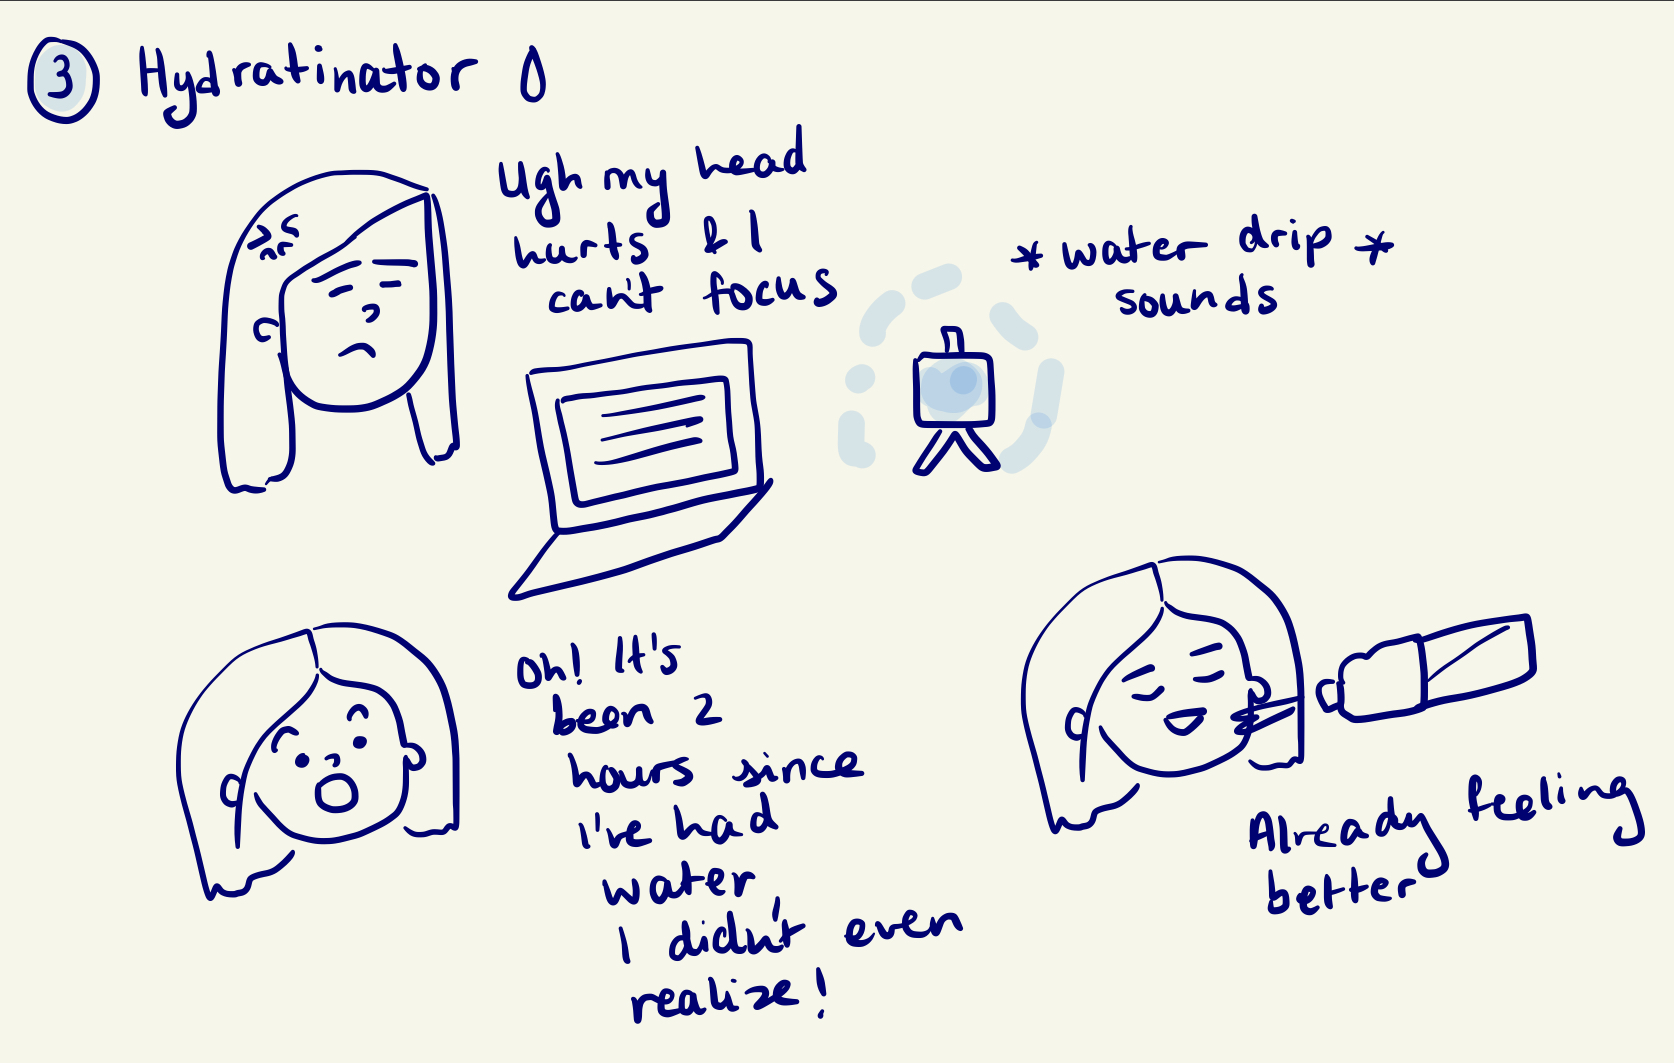 3 Hydratinator
Ugh my head
hurts & I
can't focus
* water drip *
sounds
Oh! It's
been 2
hours since
I've had
water
I didn't even
realize!
Already feeling
better